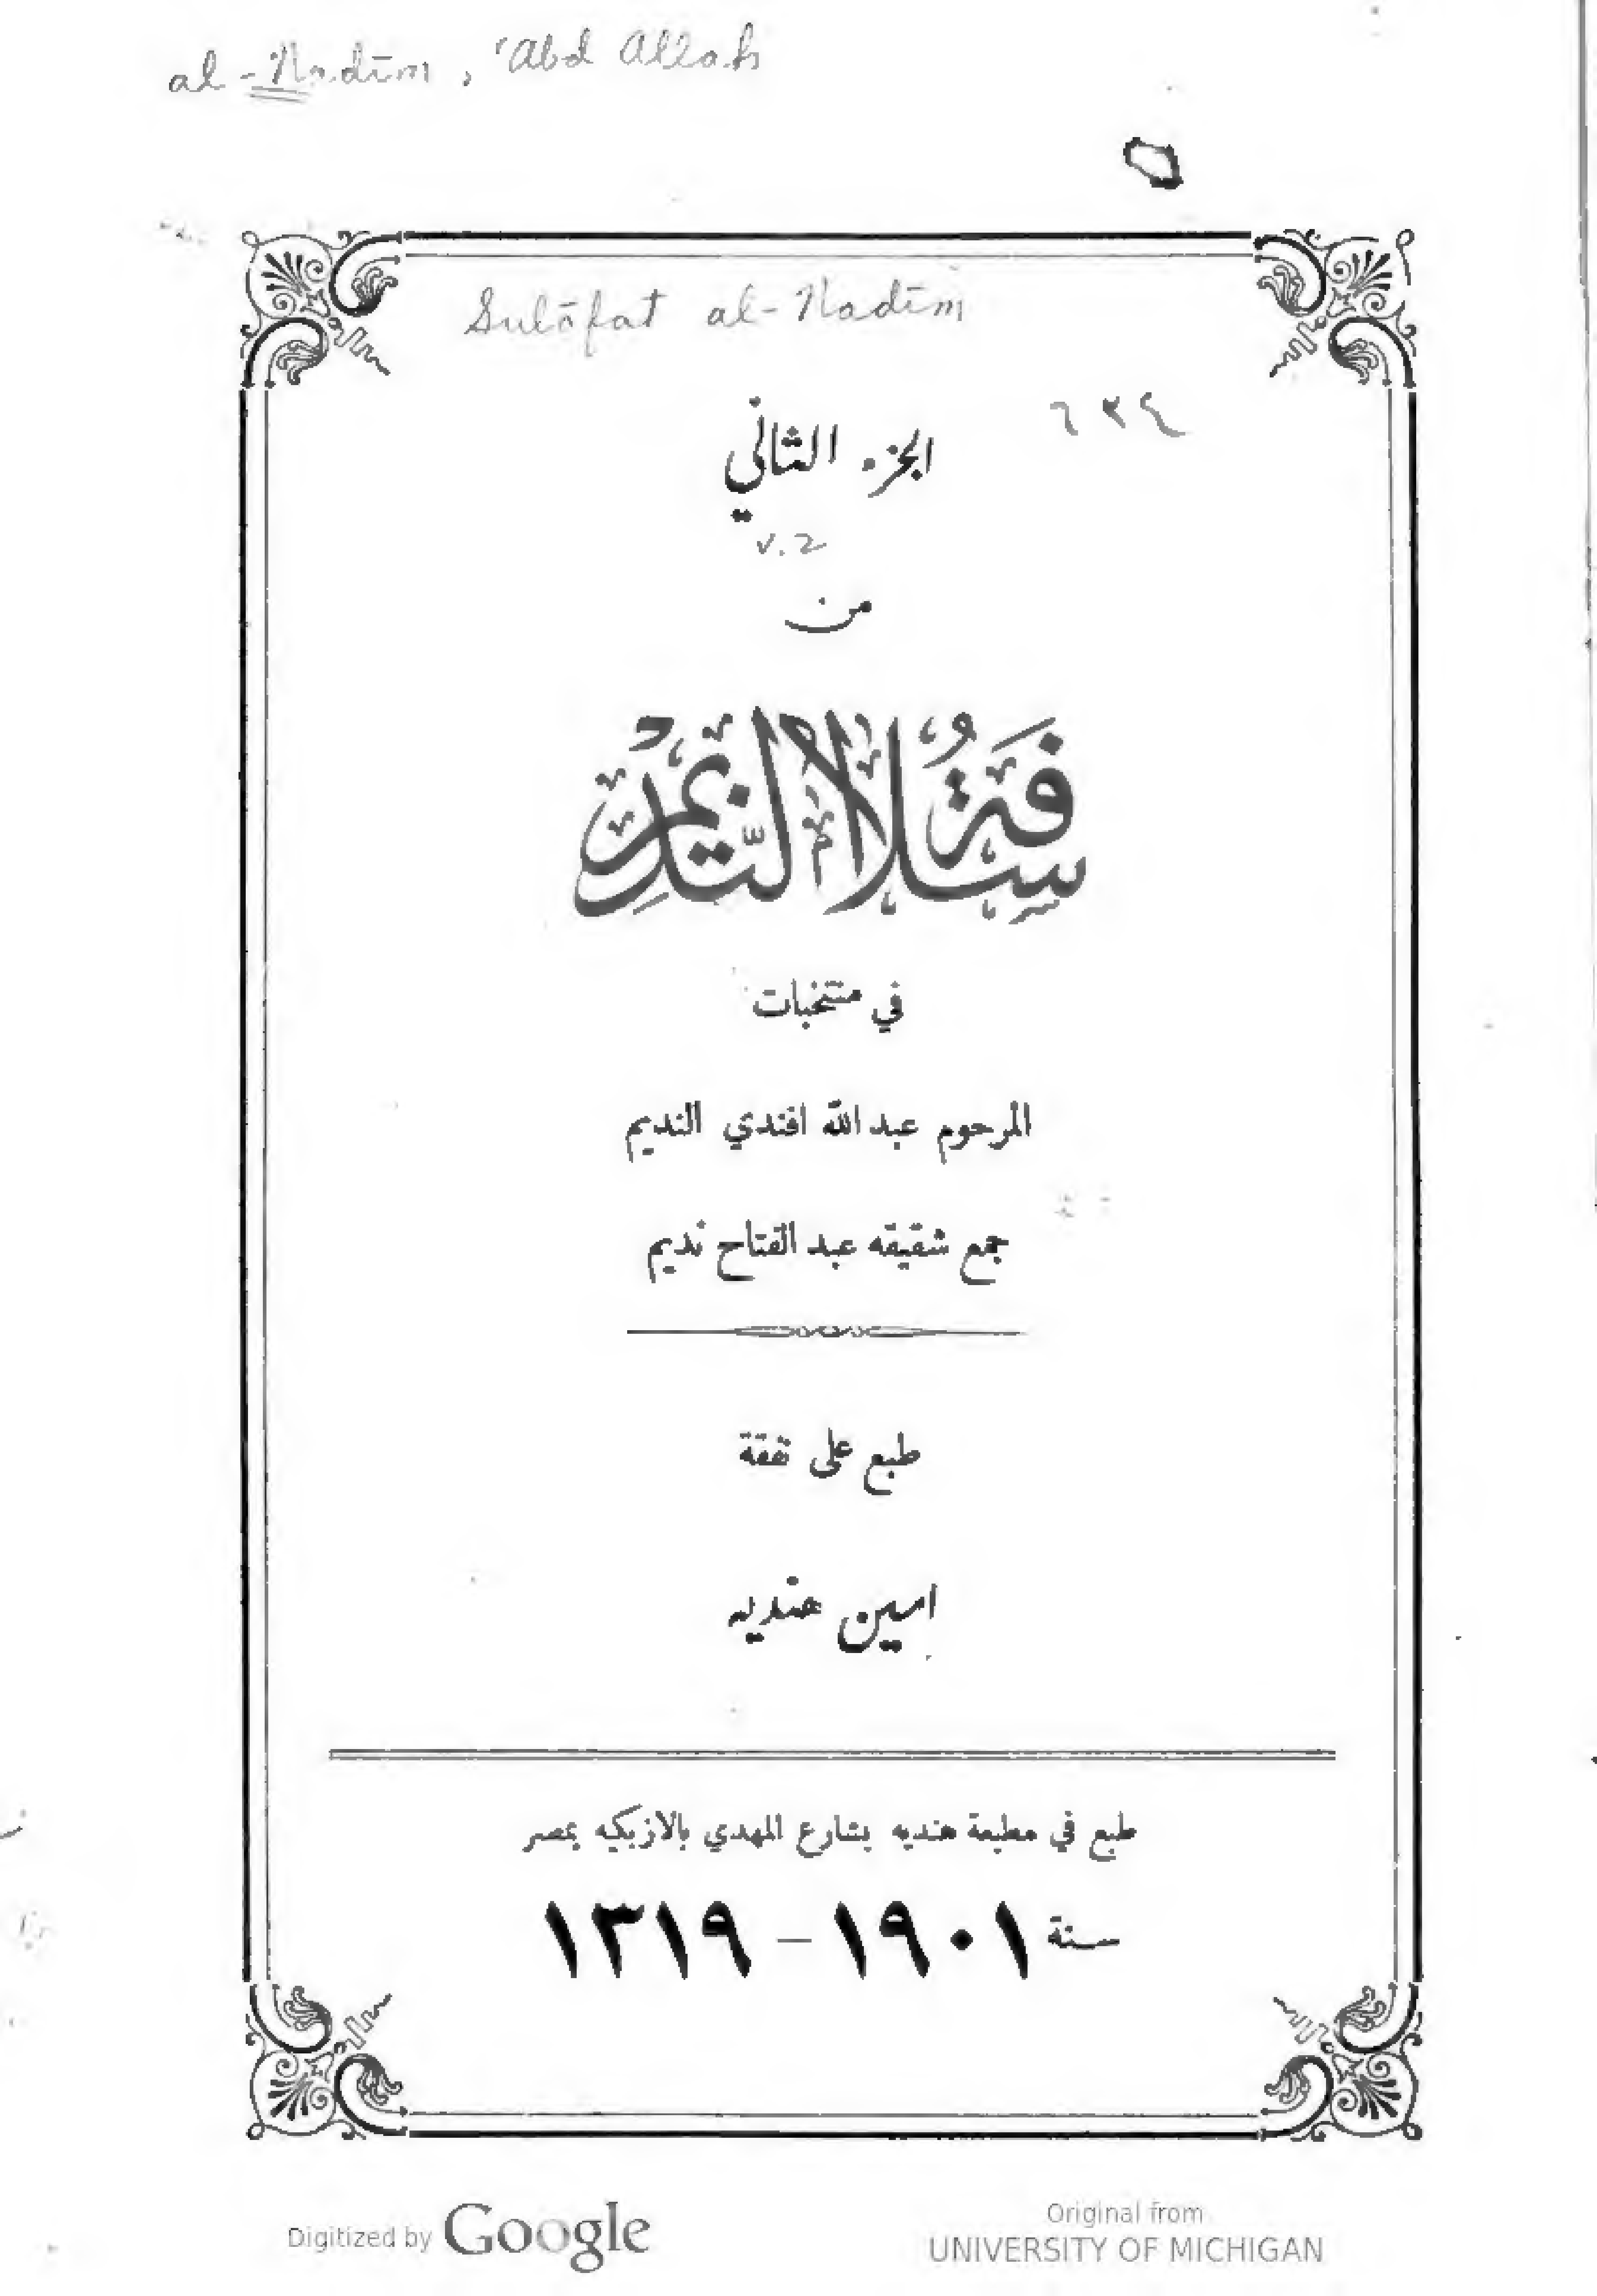 al-Nadīm, 'Abd Allah
Sulāfat al-Nadīm
الجزء الثاني
v.2
من
سُلَافَةُ النَّدِيمْ
في منتخبات
المرحوم عبد الله افندي النديم
جمع شقيقه عبد الفتاح نديم
طبع على نفقة
امين هنديه
طبع في مطبعة هنديه بشارع المهدي بالازبكيه بمصر
سنة ١٩٠١ - ١٣١٩
Digitized by Google
Original from
UNIVERSITY OF MICHIGAN